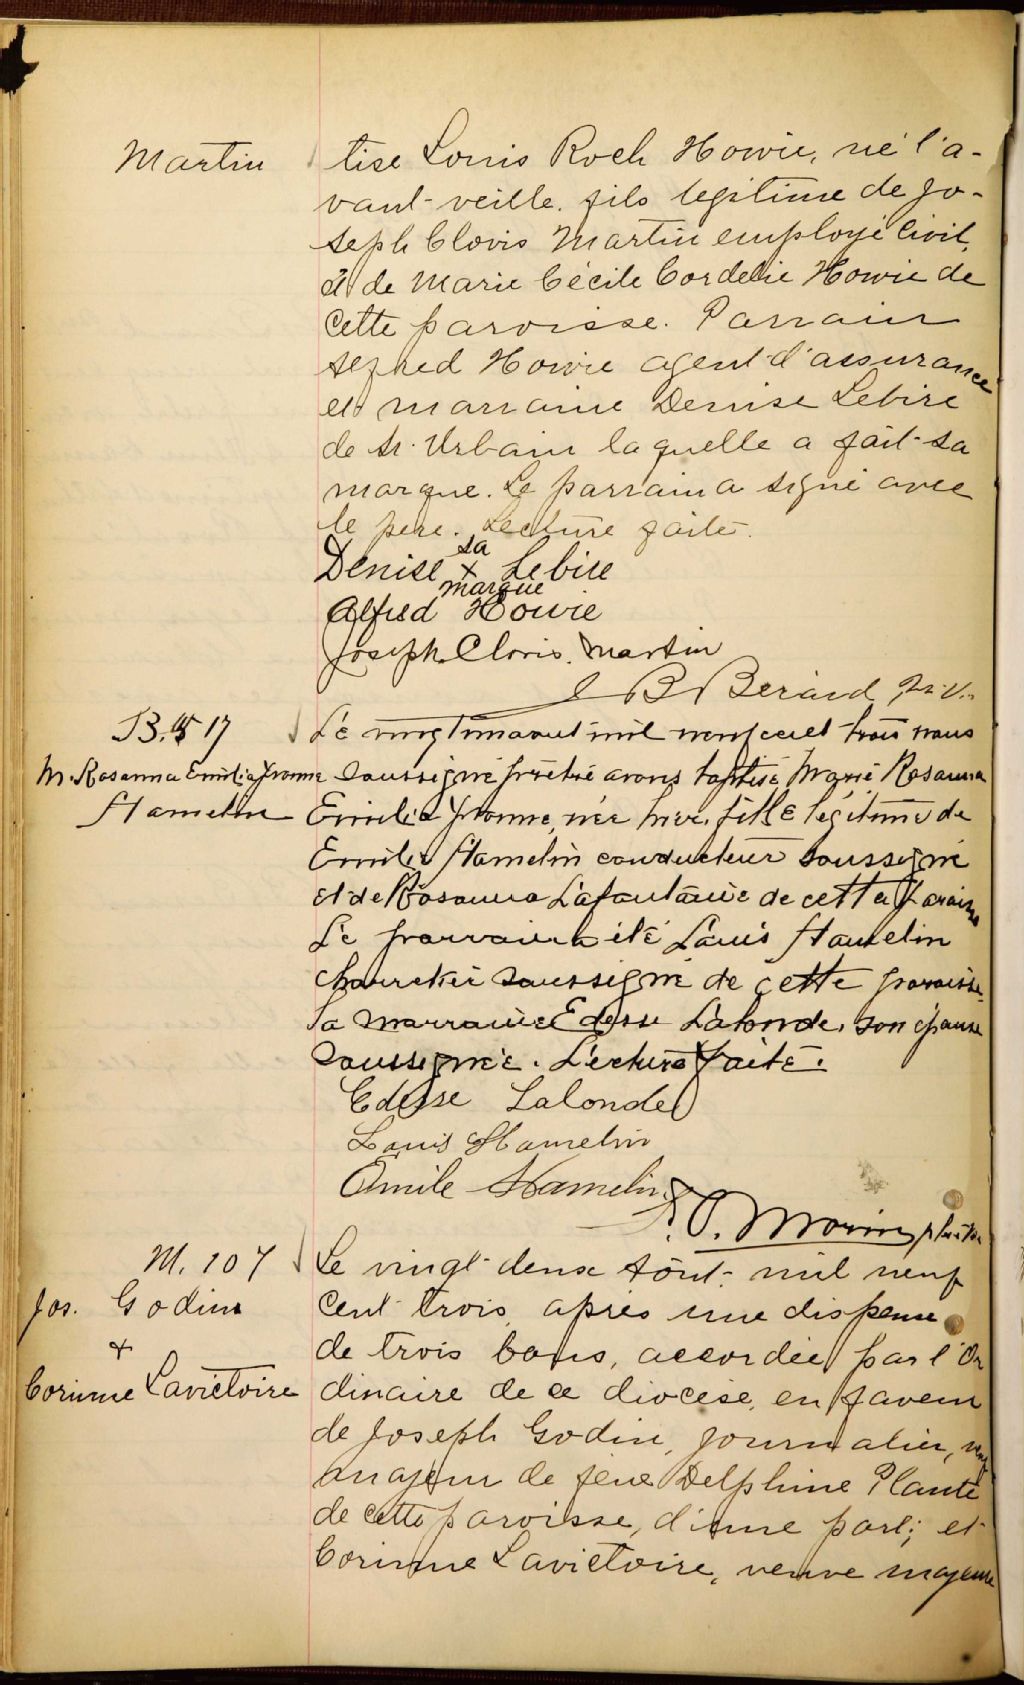 Martin
tise Louis Roch Howie, né l'a-
vant-veille. fils légitime de Jo-
seph Clovis Martin employé civil,
et de Marie Cécile Cordelie Howie de
cette paroisse. Parrain
Howie agent d'assurance
et marraine Denise Lebire
de St. Urbain laquelle a fait sa
marque. Le parrain a signé avec
le père. Lecture faite.
sa
Denise x Lebire
marque
Alfred Howie
Joseph Clovis Martin
B Berard
B. 517
M. Rosanna Emilia Yvonne
Hamelin
Le vingt un aout mil neuf cent trois nous
soussigné prêtre avons baptisé Marie Rosanna
Emilia Yvonne, née hier, fille légitime de
Emile Hamelin conducteur soussigné
et de Rosanna Lafontaine de cette paroisse
Le parrain a été Louis Hamelin
charretier soussigné de cette paroisse.
la marraine Edesse Lalonde, son épouse
soussignée. Lecture faite.
Edesse Lalonde
Louis Hamelin
Emile Hamelin
O. Morin ptre
M. 107
Jos. Godin
+
Corinne Lavictoire
Le vingt-deux août mil neuf
cent trois, après une dispense
de trois bans, accordée par l'Or
dinaire de ce diocèse, en faveur
de Joseph Godin, journalier, veuf
majeur de feue Delphine Plante
de cette paroisse, d'une part; et
Corinne Lavictoire, veuve majeure